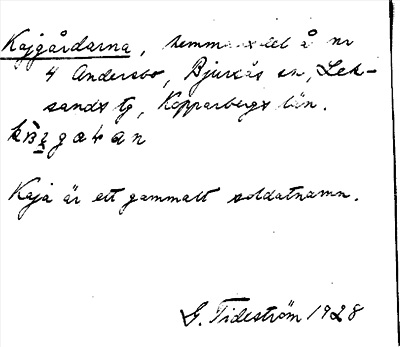 Kajgårdarna, hemmansdel å nr
4 Andersbo, Bjursås sn, Lek-
sands tg, Kopparbergs län.
Kaja är ett gammalt soldatnamn.
G. Tideström 1928